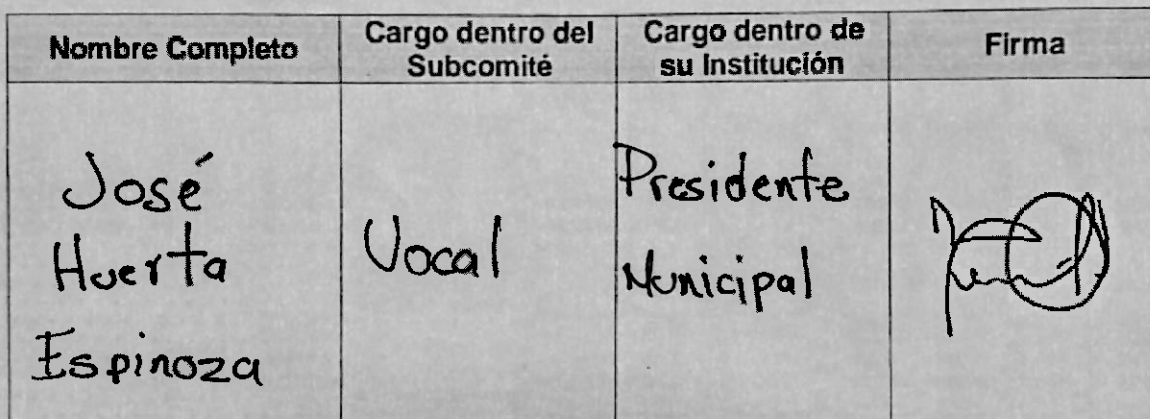 Nombre Completo
Cargo dentro del
Subcomité
Cargo dentro de
su Institución
Firma
José
Huerta
Espinoza
Vocal
Presidente
Municipal